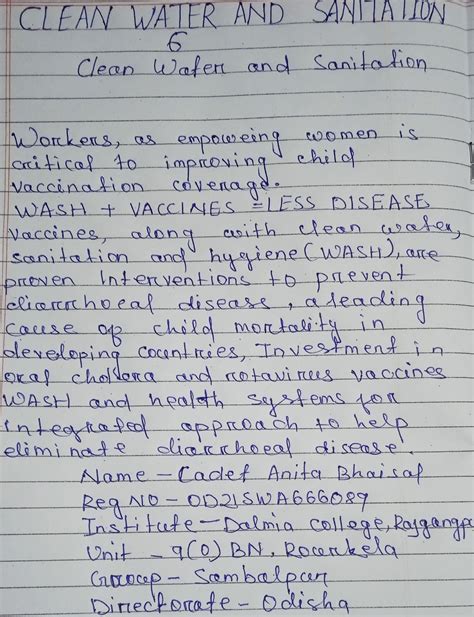 CLEAN WATER AND SANITATION
6
Clean Water and Sanitation
Workers, as empoweing women is
critical to improving child
vaccination coverage.
WASH + VACCINES = LESS DISEASE
Vaccines, along with clean water,
sanitation and hygiene (WASH), are
proven Interventions to prevent
diarrhoeal disease, a leading
cause of child mortality in
developing countries, Investment in
oral cholera and rotavirus vaccines
WASH and health systems for
integrated approach to help
eliminate diarrhoeal disease.
Name - Cadet Anita Bhaisal
Reg NO - OD21SWA666089
Institute - Dalmia college, Rajgangpu
Unit - 9(O) BN, Rourkela
Group - Sambalpur
Directorate - Odisha